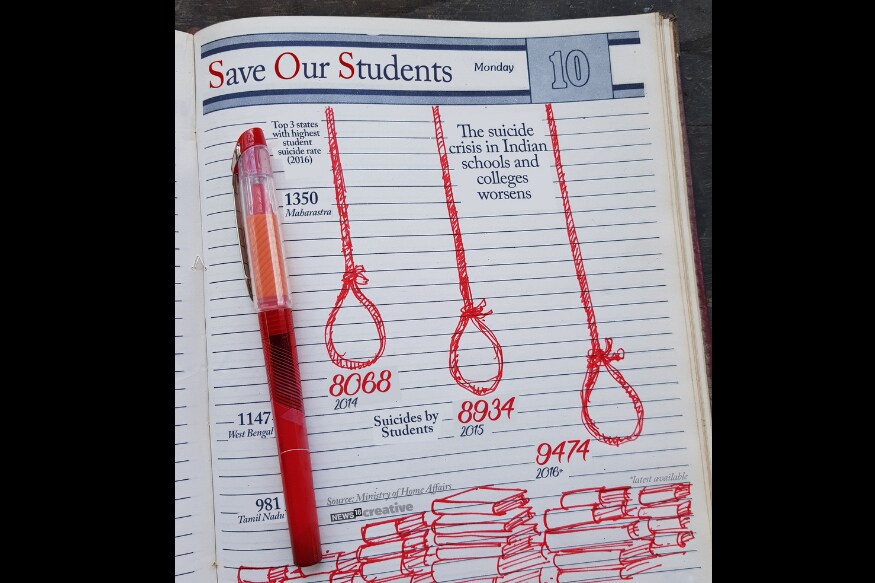 Save Our Students
Monday
10
Top 3 states
with highest
student
suicide rate
(2016)
The suicide
crisis in Indian
schools and
colleges
worsens
1350
Maharastra
8068
2014
Suicides by
Students
8934
2015
9474
2016*
1147
West Bengal
981
Tamil Nadu
*latest available
Source: Ministry of Home Affairs
NEWS18 creative